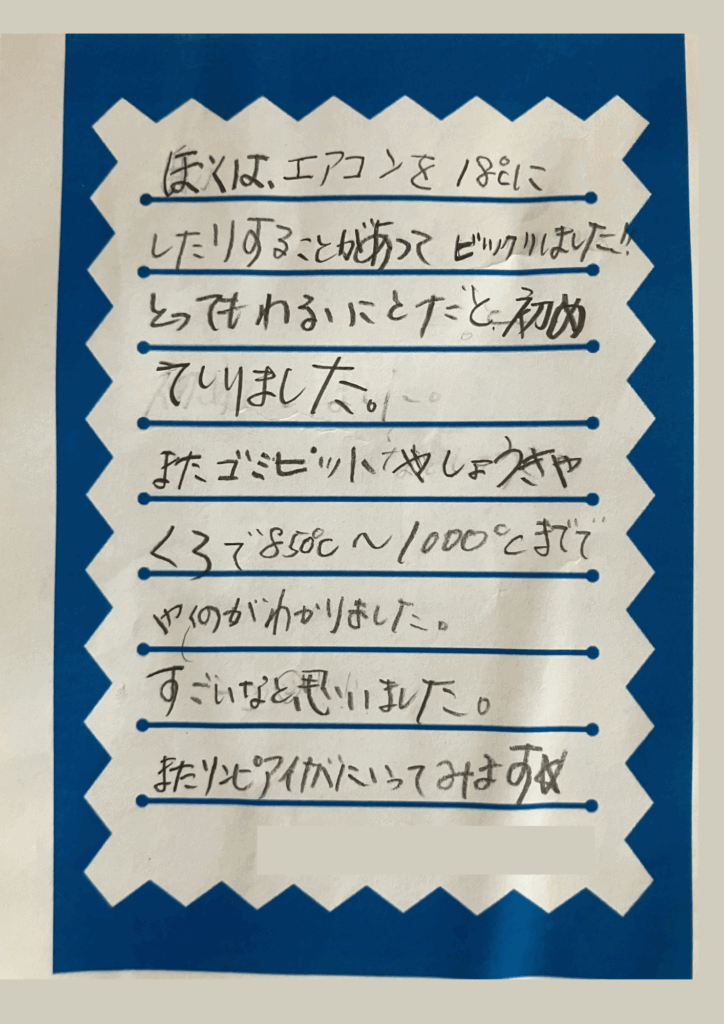 ぼくは、エアコンを18℃に
したりすることがあって ビックリしました!!
とってもわるいことだと初め
てしりました。
またゴミピットやしょうきゃ
くろで850℃〜1000℃までで
やくのがわかりました。
すごいなと思いました。
またリンピアイがにいってみます